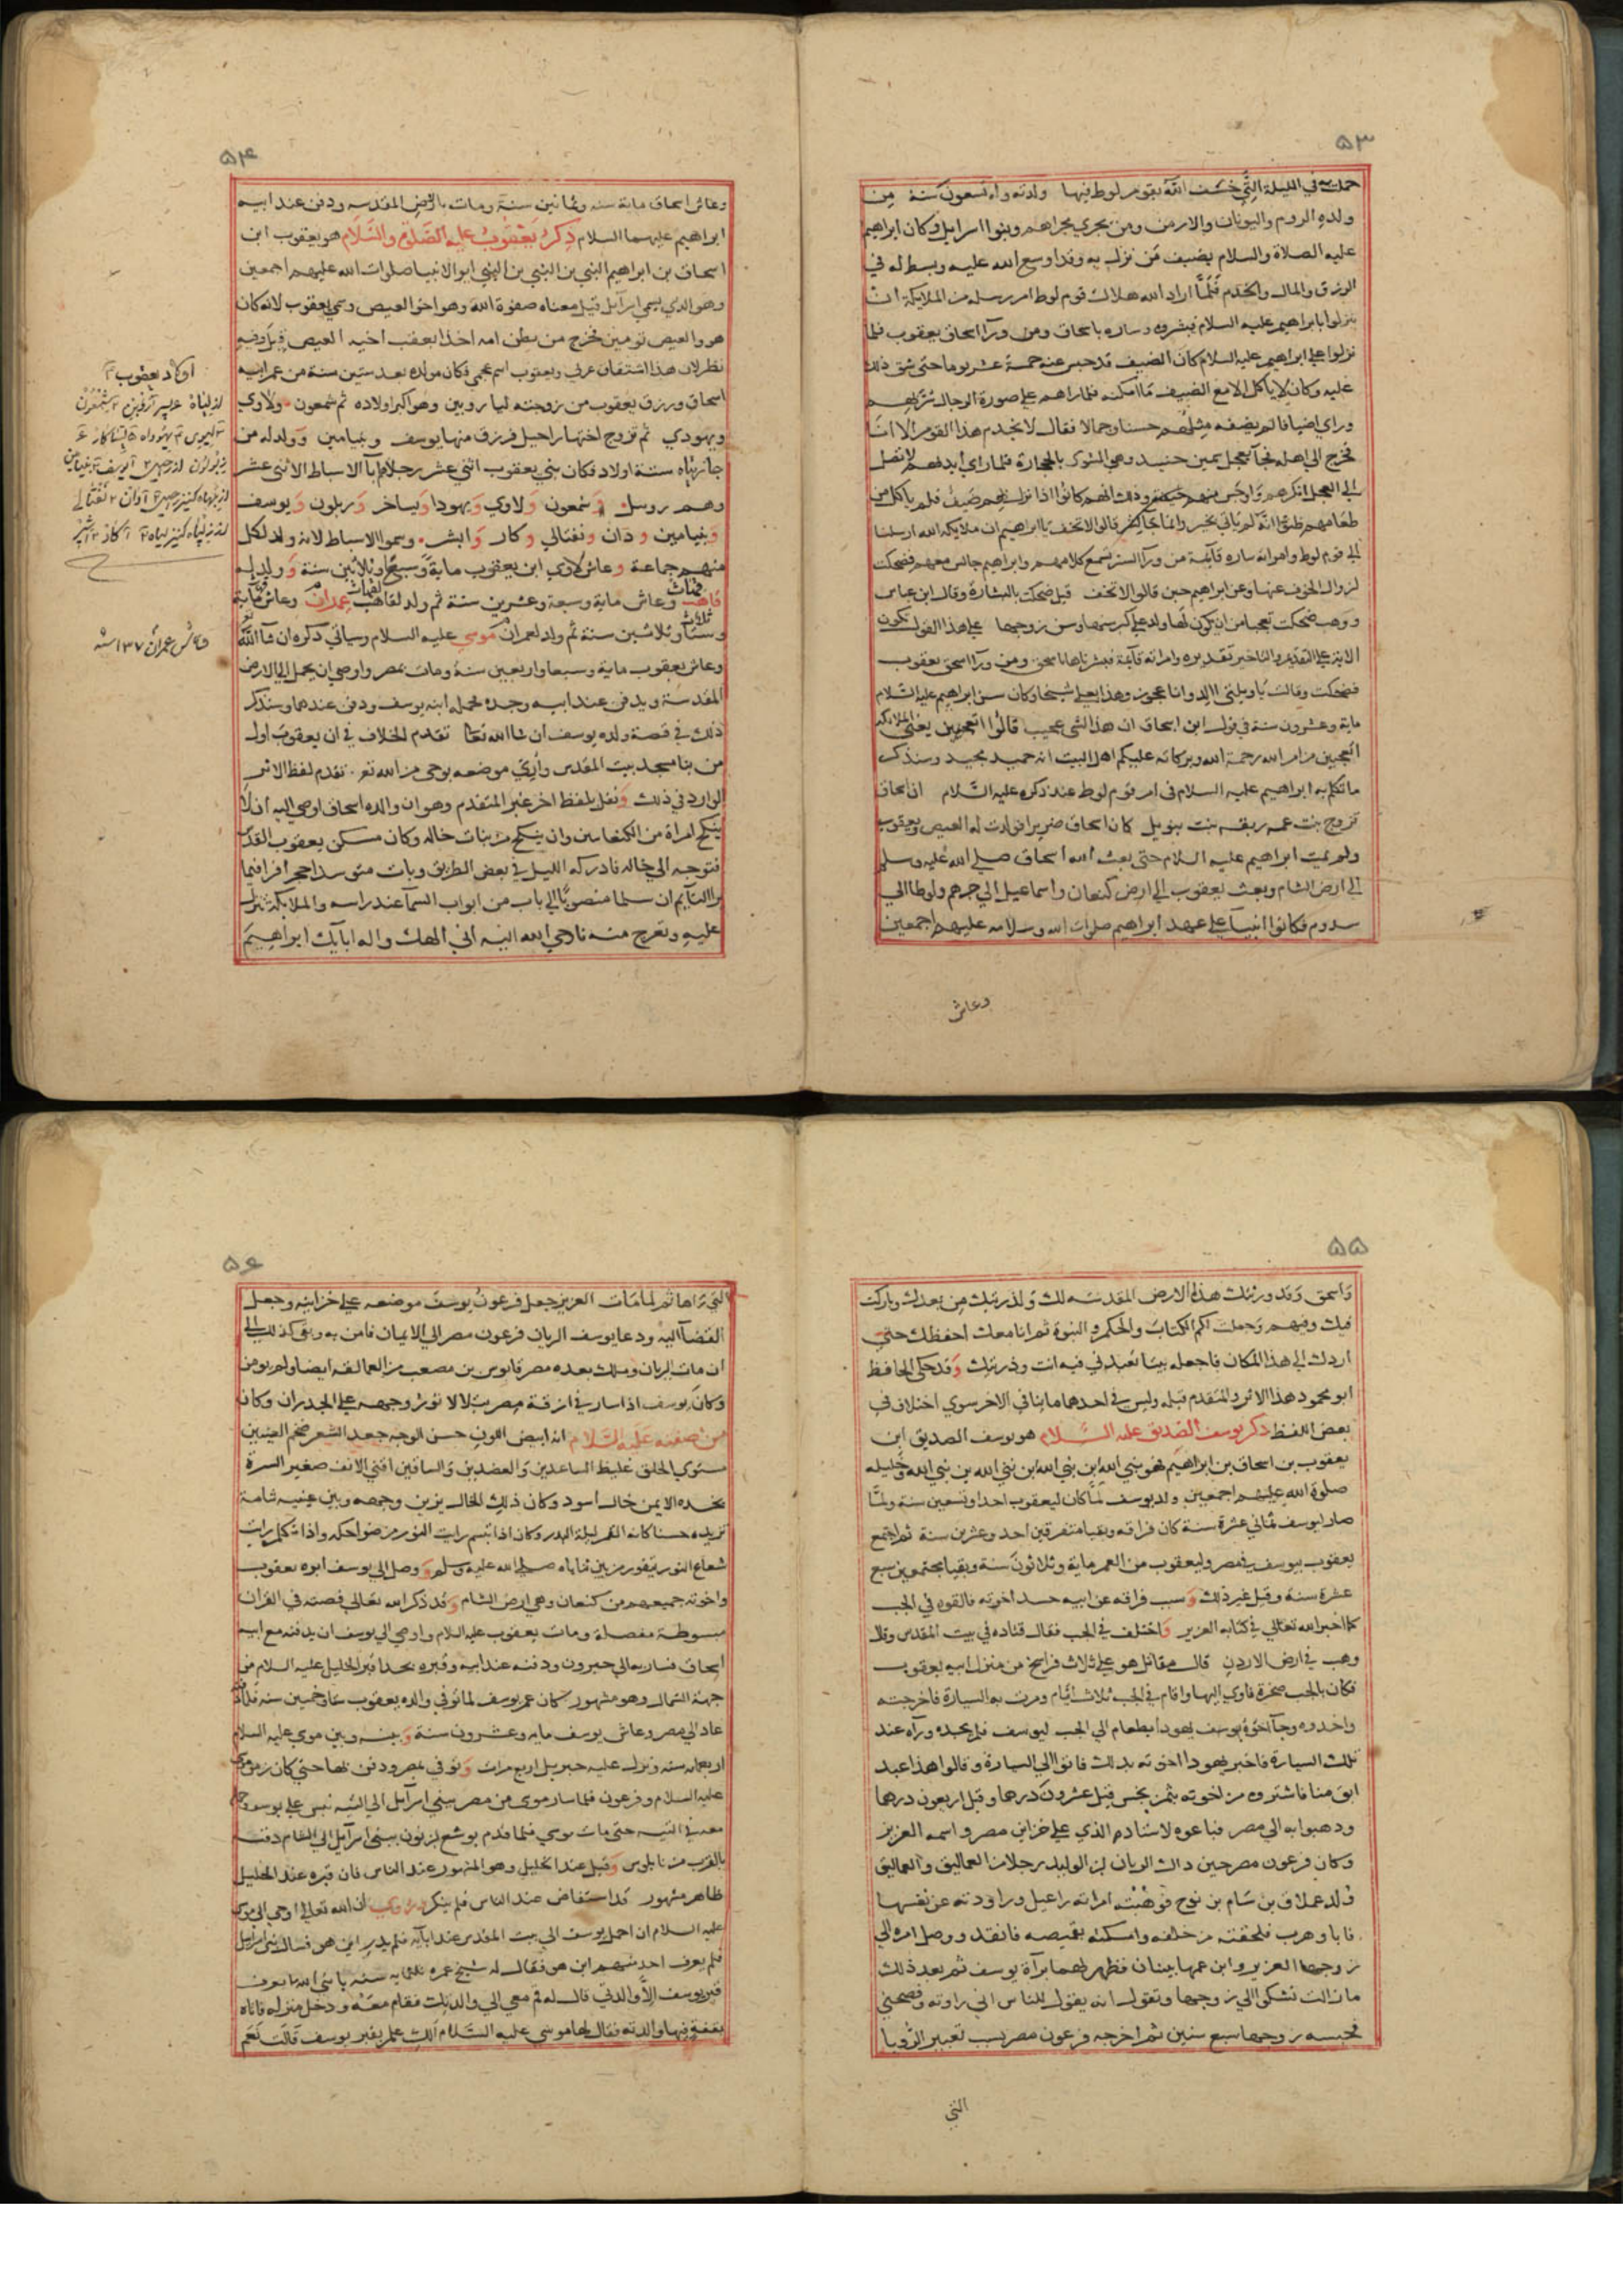 ٥٣
حملت به في الليلة التي خسف الله بقوم لوط فيها ولدته وله تسعون سنة من
ولده الروم واليونان والارمن ومن يجري مجراهم وبنوا اسرايل وكان ابراهيم
عليه الصلاة والسلام يضيف من نزل به وقد اوسع الله عليه وبسط له في
الرزق والمال والخدم فلما اراد الله هلاك قوم لوط امر رسله من الملايكة ان
ينزلوا بابراهيم عليه السلام فيبشروه وساره باسحاق ومن ورآ اسحاق يعقوب فلما
نزلوا علي ابراهيم عليه السلام كان الضيف قد حبس عنه خمسة عشر يوما حتي شق ذلك
عليه وكان لا ياكل الا مع الضيف ما امكنه فلما راهم علي صورة الرجال سر بهم
وراي اضيافا لم يضفه مثلهم حسنا وجمالا فقال لا يخدم هذا القوم الا انا
فخرج الي اهله فجآ بعجل سمين حنيد وهي المشوي بالحجارة فلما راي ايديهم لا تصل
الي العجل انكرهم واوجس منهم خيفة وذلك انهم كانوا اذا نزل بهم ضيف فلم ياكل من
طعامهم ظنوا انه لم ياتي بخير وانما جا بشر قالوا لا تخف يا ابراهيم ان ملايكة الله ارسلنا
الي قوم لوط وامراته ساره قآيمة من ورآ الستر تسمع كلامهم وابراهيم جالس معهم فضحكت
لزوال الخوف عنها وعن ابراهيم حين قالوا لا تخف قيل ضحكت بالبشارة وقال ابن عباس
ووهب ضحكت تعجبا من ان يكون لها ولد علي كبر سنها وسن زوجها علي هذا القول تكون
الاية علي التقديم والتاخير تقديره وامراته قآيمة فبشرناها باسحق ومن ورآ اسحق يعقوب
فضحكت وقالت يا ويلتي االد وانا عجوز وهذا بعلي شيخا وكان سن ابراهيم عليه السلام
ماية وعشرون سنة في قول ابن اسحاق ان هذا لشي عجيب قالوا اتعجبين يعني الملايكة
اتعجبين من امر الله رحمة الله وبركاته عليكم اهل البيت انه حميد مجيد وسنذكر
ما تكلم به ابراهيم عليه السلام في امر قوم لوط عند ذكره عليه السلام ان اسحاق
تزوج بنت عمه ربقه بنت بتويل كان اسحاق ضريرا فولدت له العيص ويعقوب
ولم يمت ابراهيم عليه السلام حتي بعث الله اسحاق صلي الله عليه وسلم
الي ارض الشام وبعث يعقوب الي ارض كنعان واسماعيل الي جرهم ولوطا الي
سدوم فكانوا انبيآ علي عهد ابراهيم صلوات الله وسلامه عليهم اجمعين
وعاش
٥٤
وعاش اسحاق ماية سنه وثمانين سنة ومات بالارض المقدسه ودفن عند ابيه
ابراهيم عليهما السلام ذكر يعقوب عليه الصلوة والسلام هو يعقوب ابن
اسحاق بن ابراهيم النبي بن النبي بن النبي ابو الانبيا صلوات الله عليهم اجمعين
وهو الدي يسمي اسرآيل قيل معناه صفوة الله وهو اخو العيص وسمي يعقوب لانه كان
هو والعيص تومين فخرج من بطن امه اخذا بعقب اخيه العيص قيل وفيه
نظر لان هذا اشتقاق عربي ويعقوب اسم عجمي فكان مولده بعد ستين سنة من عمر ابيه
اسحاق ورزق يعقوب من زوجته ليا روبين وهو اكبر اولاده ثم شمعون ولاوي
ويهودي ثم تزوج اختها راحيل فرزق منها يوسف وبنيامين وولد له من
جاريتاه ستة اولاد فكان بني يعقوب اثني عشر رجلا هم ابآ الاسباط الاثني عشر
وهم روبيل وشمعون ولاوي ويهودا ويساخر وزبلون ويوسف
وبنيامين ودان ونفتالي وكار وابشر وسموا الاسباط لانه ولد لكل
منهم جماعة وعاش لاوي ابن يعقوب ماية وسبعا وثلاثين سنة وولد له
قاهث وعاش ماية وسبعة وعشرين سنة ثم ولد لقاهث عمران وعاش ماية
وستا وثلاثين سنة ثم ولد لعمران موسي عليه السلام وسياتي ذكره ان شآ الله
وعاش يعقوب ماية وسبعا واربعين سنة ومات بمصر واوصي ان يحمل الي الارض
المقدسة ويدفن عند ابيه وجده فحمله ابنه يوسف ودفن عندهما وسنذكر
ذلك في قصة ولده يوسف ان شا الله تعا تقدم الخلاف في ان يعقوب اول
من بنا مسجد بيت المقدس وأري موضعه بوحي من الله تع تقدم لفظ الاثر
الوارد في ذلك ونقل بلفظ اخر غير المتقدم وهو ان والده اسحاق اوصي اليه ان لا
ينكح امراة من الكنعانين وان ينكح من بنات خاله وكان مسكن يعقوب القدس
فتوجه الي خاله فادركه الليل في بعض الطريق وبات متوسدا حجرا فراي فيما
يرا النآيم ان سلما منصوبا الي باب من ابواب السمآ عند راسه والملايكة تنزل
عليه وتعرج منه فاوحي الله اليه اني الهك واله ابايك ابراهيم
اولاد يعقوب
وعاش عمران ١٣٧ سنه
٥٥
واسحق وقد ورثتك هذه الارض المقدسه لك ولذريتك من بعدك وباركت
فيك وفيهم وجعلت لكم الكتاب والحكم والنبوة ثم انا معك احفظك حتي
اردك الي هذا المكان فاجعله بيتا تعبدني فيه انت وذريتك وقد حكي الحافظ
ابو محمود هذا الاثر والمتقدم قبله وليس في احدهما ما ينافي الاخر سوي اختلاف في
بعض اللفظ ذكر يوسف الصديق عليه السلام هو يوسف الصديق ابن
يعقوب بن اسحاق بن ابراهيم فهو بني الله ابن بني الله ابن نبي الله بن نبي الله وخليله
صلوة الله عليهم اجمعين ولد يوسف لما كان ليعقوب احدا وتسعين سنة ولما
صار ليوسف ثماني عشرة سنة كان فراقه وبقيا متفرقين احد وعشرين سنة ثم اجتمع
يعقوب بيوسف في مصر وليعقوب من العمر ماية وثلاثون سنة وبقيا مجتمعين سبع
عشرة سنة وقيل غير ذلك وسبب فراقه عن ابيه حسد اخوته فالقوه في الجب
كما اخبر الله تعالي في كتابه العزيز واختلف في الجب فقال قتاده في بيت المقدس وقال
وهب في ارض الاردن قال مقاتل هو علي ثلاث فراسخ من منزل ابيه يعقوب
فكان بالجب صخرة فاوي اليها واقام في الجب ثلاث ايام ومرت به السيارة فاخرجته
واخدوه وجآ اخوة يوسف يهودا بطعام الي الجب ليوسف فلم يجده ورآه عند
تلك السيارة فاخبر يهودا اخوته بذلك فاتوا الي السيارة وقالوا هذا عبد
ابق منا فاشتروه من اخوته بثمن بخس قيل عشرون درهما وقيل اربعون درهما
ودهبوا به الي مصر فباعوه لاستاده الذي علي خزاين مصر واسمه العزيز
وكان فرعون مصر حين ذاك الريان ابن الوليد رجلا من العماليق والعماليق
ولد عملاق بن سام بن نوح فوهبته امراته راعيل وراودته عن نفسها
فابا وهرب فلحقته من خلفه وامسكته بقميصه فانقد ووصل امره الي
زوجها العزيز وابن عمها بينان فظهر لهما برآة يوسف ثم بعد ذلك
مازالت تشكي الي زوجها وتقول انه يقول للناس اني راودته وفضحني
فحبسه زوجها سبع سنين ثم اخرجه فرعون مصر بسبب تعبير الرويا
التي
٥٦
التي راها ثم لما مات العزيز جعل فرعون يوسف موضعه علي خزاينه وجعل
القضآ اليه ودعا يوسف الريان فرعون مصر الي الايمان فامن به وبقي كذلك الي
ان مات الريان وملك بعده مصر قابوس بن مصعب من العمالقه ايضا ولم يومن
وكان يوسف اذا سار في ازقة مصر يتلالا نور وجهه علي الجدران وكان
من صفته عليه السلام انه ابيض اللون حسن الوجه جعد الشعر ضخم العينين
مستوي الخلق غليظ الساعدين والعضدين والساقين اقني الانف صغير السرة
بخده الايمن خال اسود وكان ذلك الخال يزين وجهه وبين عينيه شامة
تزيده حسنا كانه القمر ليلة البدر وكان اذا تبسم رايت النور من ضواحكه واذا تكلم رايت
شعاع النور يتفور من بين ثناياه صلي الله عليه وسلم ووصل الي يوسف ابوه يعقوب
واخوته جميعهم من كنعان وهي ارض الشام وقد ذكر الله تعالي قصته في القران
مبسوطة مفصلة ومات يعقوب عليه السلام واوصي الي يوسف ان يدفنه مع ابيه
اسحاق فسار به الي حبرون ودفنه عند ابيه وقبره بحدا قبر الخليل عليه السلام من
جهة الشمال وهو مشهور كان عمر يوسف لما توفي والده يعقوب ستا وخمسين سنة
عاد الي مصر وعاش يوسف مايه وعشرون سنة وبينه وبين موسي عليه السلام
اربعمايه سنه ونزل عليه جبريل اربع مرات وتوفي بمصر ودفن بها حتي كان زمن موسي
عليه السلام وفرعون فلما سار موسي من مصر ببني اسرآيل الي التيه نبش علي يوسف وحمله
معه في التيه حتي مات موسي فلما قدم يوشع ابن نون ببني اسرآيل الي الشام دفنه
بالقرب من نابلوس وقيل عند الخليل وهو المشهور عند الناس فان قبره عند الخليل
ظاهر مشهور قد استفاض عند الناس فلم ينكر وروي ان الله تعالي اوحي الي موسي
عليه السلام ان احمل يوسف الي بيت المقدس عند ابآيه فلم يدر اين هو فسال بني اسرايل
فلم يعرف احد منهم اين هو فقال له شيخ عمره ثلثمايه سنه يا نبي الله ما يعرف
قبر يوسف الا والدتي قال له قم معي الي والدتك فقام معه ودخل منزله فاتاه
بقفة فيها والدته فقال لها موسي عليه السلام الك علم بقبر يوسف قالت نعم